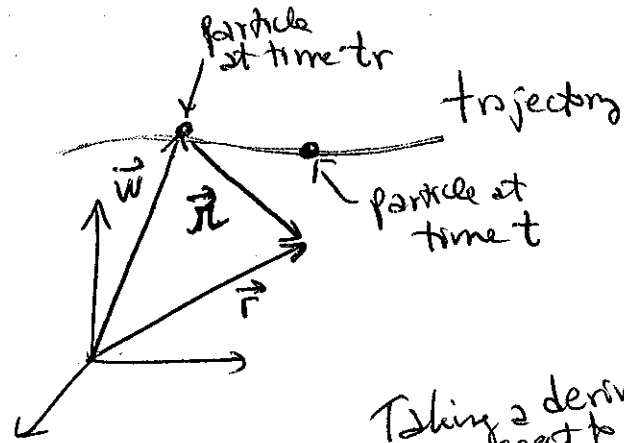 particle
at time tr
trajectory
particle at
time t
w
r
r
Taking a deriv